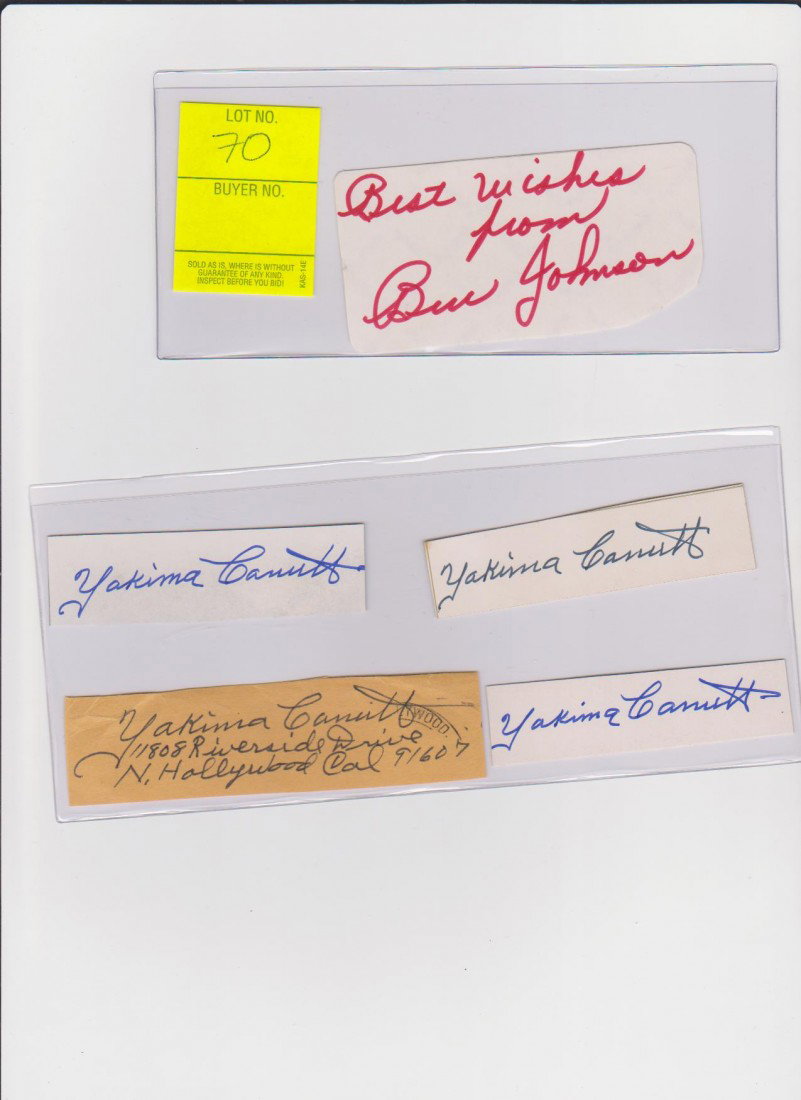 LOT NO.
70
BUYER NO.
SOLD AS IS, WHERE IS WITHOUT
GUARANTEE OF ANY KIND.
INSPECT BEFORE YOU BID!
KAS-14E
Best wishes
from
Ben Johnson
Yakima Canutt
Yakima Canutt
Yakima Canutt
11808 Riverside Drive
N. Hollywood Cal 91607
YWOOD.
Yakima Canutt